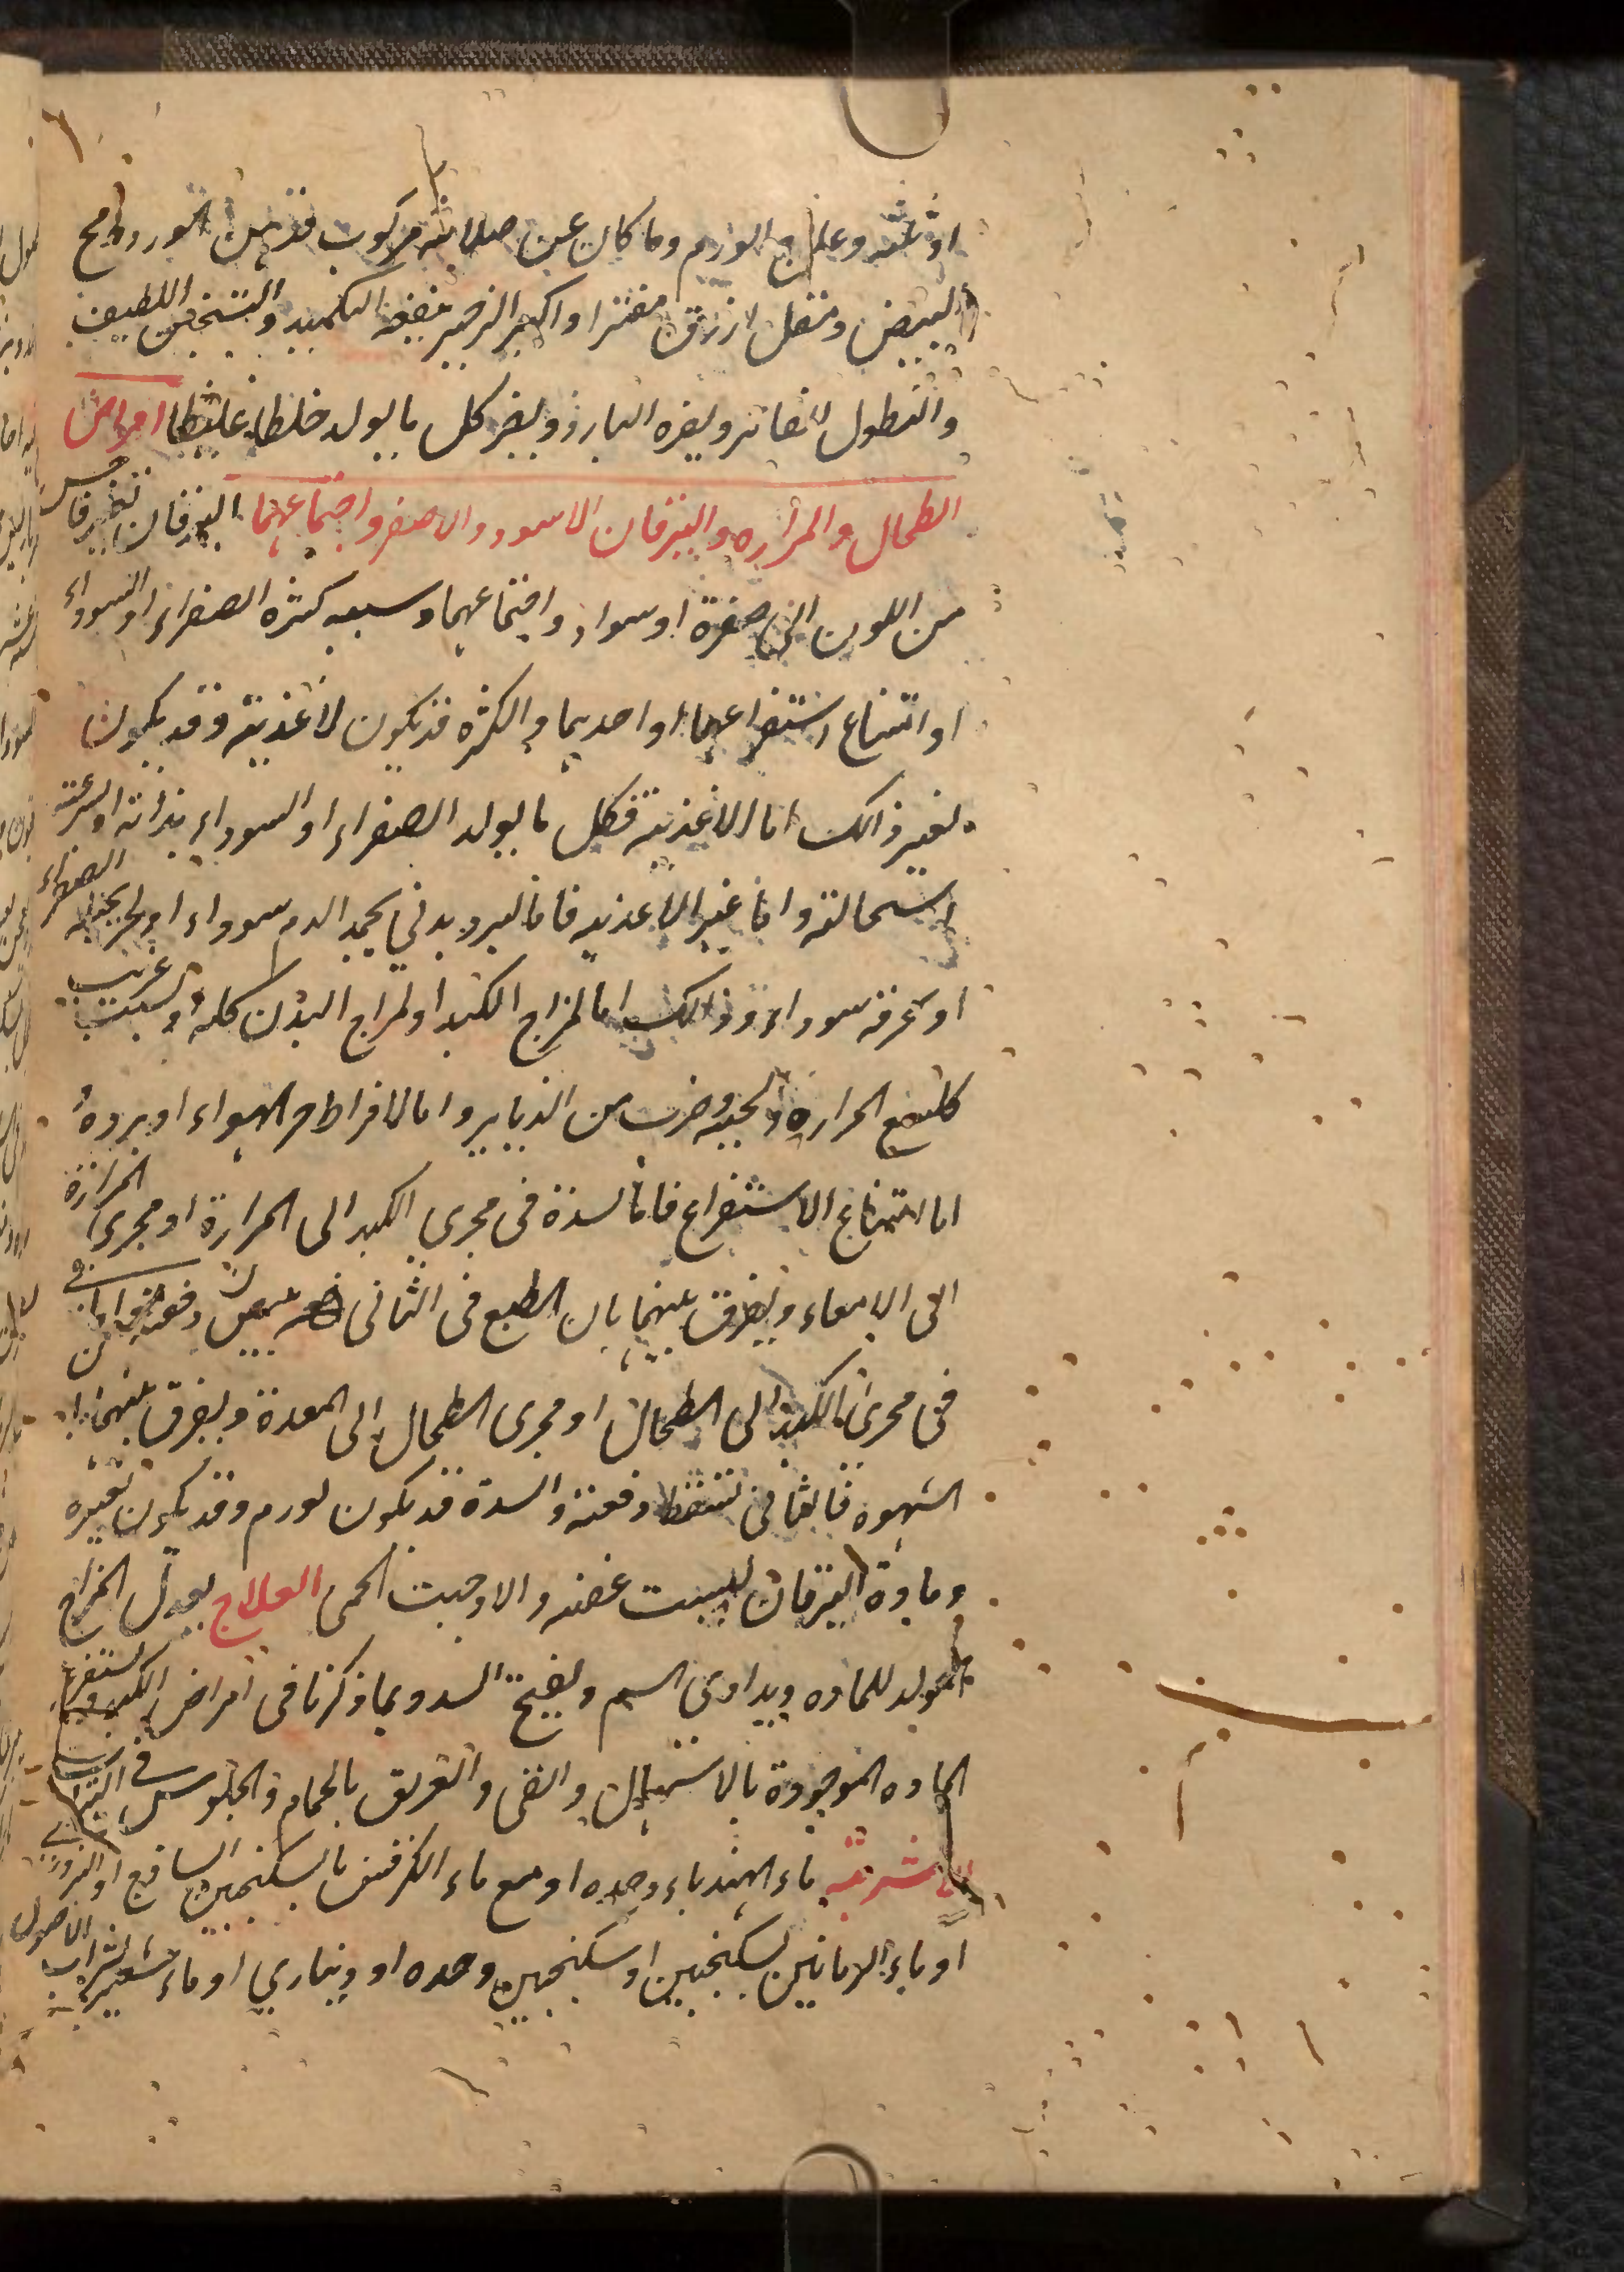 او ثفله وعلاج الورم وما كان عن صلابة مركوب فدهن الورد ومح
البيض ومقل ازرق مفترا واكثر الزحير ينفعه التكميد والتسخين اللطيف
والنطول الفاتر ويضره البارد ويضر كل ما يولد خلطا غليظا امراض
الطحال والمرارة واليرقان الاسود والاصفر واجتماعهما اليرقان تغير فاحش
من اللون الى صفرة او سواد واجتماعهما وسببه كثرة الصفراء او السوداء
او امتناع استفراغهما او احديهما والكثرة قد يكون لاغذية وقد يكون
لغير ذالك اما الاغذية فكل ما يولد الصفراء او السوداء بذاته او لسرعة
استحالته واما غير الاغذية فاما لبرد بدني يجمد الدم سوداء او لحر يجعله الصفراء
او يحرقه سوداء وذالك اما لمزاج الكبد او لمزاج البدن كله او لسبب غريب
كلسع الحرارة والحية وضرب من الذنابير واما لافراط حر الهواء او برده
اما امتناع الاستفراغ فاما لسدة فى مجرى الكبد الى المرارة او مجرى المرارة
الى الامعاء ويفرق بينهما بان الطبع فى الثانى يبيض دفعة واما
فى مجرى الكبد الى الطحال او مجرى الطحال الى المعدة ويفرق بينهما بان
الشهوة فى الثانى تسقط دفعة والسدة قد يكون لورم وقد يكون لغيره
ومادة اليرقان ليست عفنه والا وجبت الحمى العلاج يعدل المزاج
المولد للماده ويداوى السم ويفتح السدد بما ذكرنا فى امراض الكبد ويستفرغ
الماده الموجودة بالاسهال والقى والتعريق بالحمام والجلوس فى
الاشربة ماء الهندباء وحده او مع ماء الكرفس بالسكنجبين الساذج او البزورى
او ماء الرمانين بسكنجبين او سكنجبين وحده او دينارى او ماء شعير بشراب الاصول